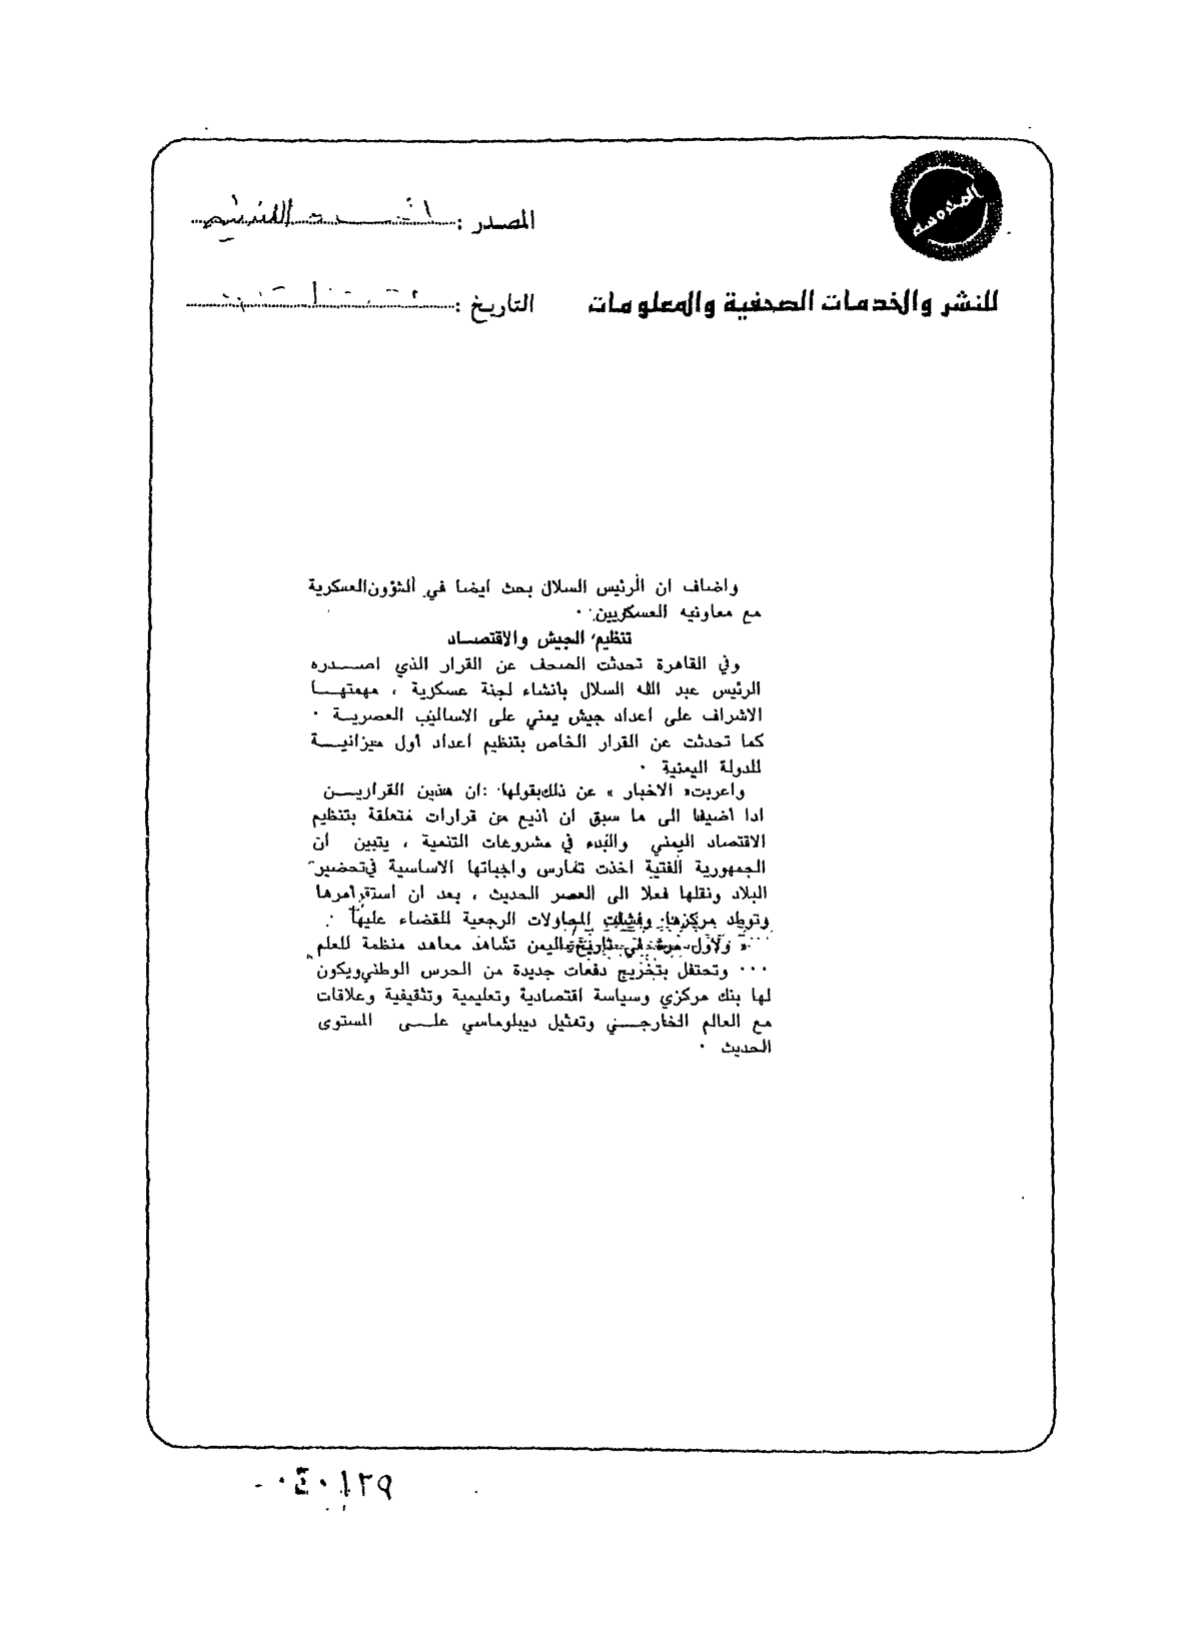 المحروسة
المصدر :
للنشر والخدمات الصحفية والمعلومات
التاريخ :
واضاف ان الرئيس السلال بحث ايضا في الشؤون العسكرية
مع معاونيه العسكريين .
تنظيم الجيش والاقتصاد
وفي القاهرة تحدثت الصحف عن القرار الذي اصدره
الرئيس عبد الله السلال بانشاء لجنة عسكرية ، مهمتها
الاشراف على اعداد جيش يمني على الاساليب العصرية .
كما تحدثت عن القرار الخاص بتنظيم اعداد اول ميزانية
للدولة اليمنية .
واعربت« الاخبار » عن ذلك بقولها : ان هذين القرارين
اذا اضيفا الى ما سبق ان اذيع من قرارات متعلقة بتنظيم
الاقتصاد اليمني والبدء في مشروعات التنمية ، يتبين ان
الجمهورية الفتية اخذت تمارس واجباتها الاساسية في تحضير
البلاد ونقلها فعلا الى العصر الحديث ، بعد ان استقر امرها
وتوطد مركزها وفشلت المحاولات الرجعية للقضاء عليها .
« ولاول مرة في تاريخ اليمن تشاهد معاهد منظمة للعلم
... وتحتفل بتخريج دفعات جديدة من الحرس الوطني ويكون
لها بنك مركزي وسياسة اقتصادية وتعليمية وتثقيفية وعلاقات
مع العالم الخارجي وتمثيل ديبلوماسي على المستوى
الحديث .
٠٤٠١٢٩